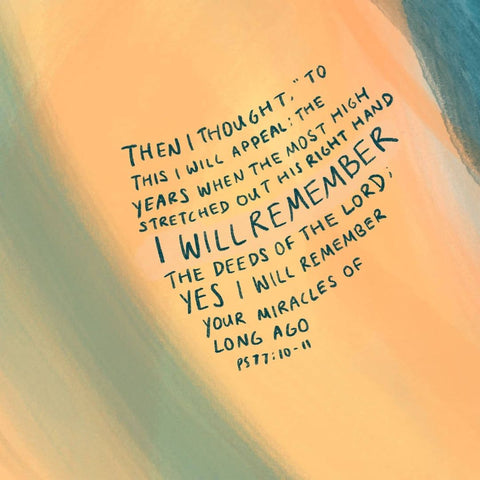 THEN I THOUGHT, "TO
THIS I WILL APPEAL: THE
YEARS WHEN THE MOST HIGH
STRETCHED OUT HIS RIGHT HAND
I WILL REMEMBER
THE DEEDS OF THE LORD;
YES I WILL REMEMBER
YOUR MIRACLES OF
LONG AGO
PS 77:10-11